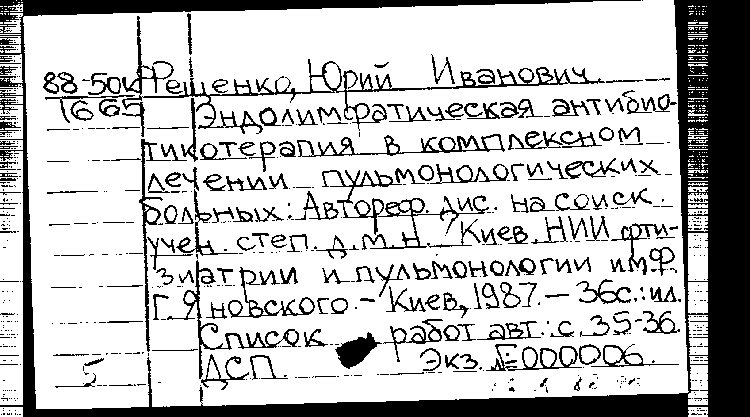 88-50к Фещенко, Юрий Иванович.
1665 Эндолимфатическая антибио-
тикотерапия в комплексном
лечении пульмонологических
больных: Автореф. дис. на соиск.
учен. степ. д.м.н. / Киев. НИИ фти-
зиатрии и пульмонологии им. Ф.
Г. Яновского. - Киев, 1987. - 36с.: ил.
Список работ авт.: с. 35-36.
5 ДСП. Экз. №000006.